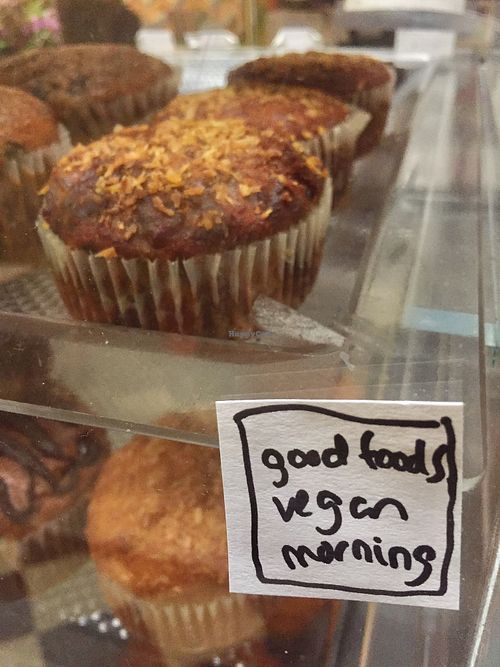 HappyCow
good foods
vegan
morning